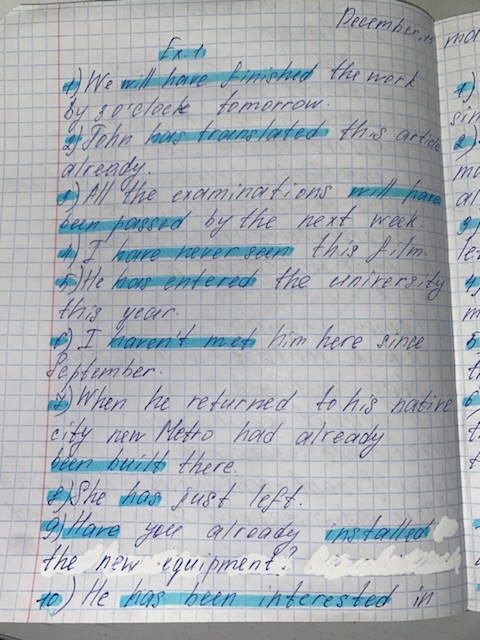 December,
Ex. 1
1) We will have finished the work
by 3 o'clock tomorrow.
2) John has translated this article
already.
3) All the examinations will have
been passed by the next week.
4) I have never seen this film.
5) He has entered the university
this year.
6) I haven't met him here since
September.
7) When he returned to his native
city new Metro had already
been built there.
8) She has just left.
9) Have you already installed
the new equipment?
10) He has been interested in
1)
sin
2)
al
3)
4)
m
5
6